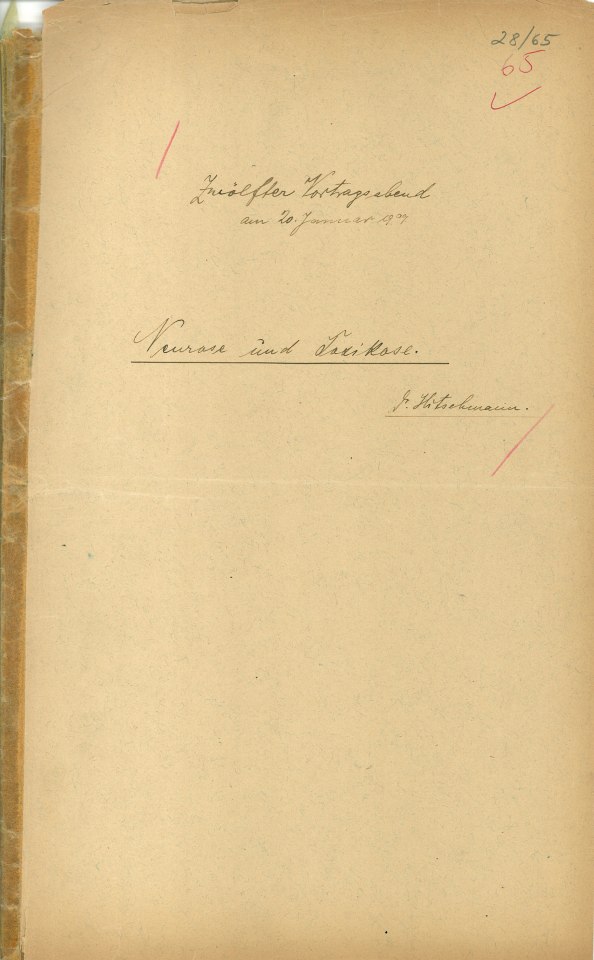 28/65
65
Zwölfter Vortragsabend
am 20. Januar 1909
Neurose und Toxikose.
Dr. Hitschmann.